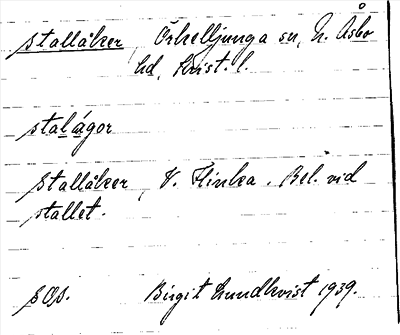 Stallåker, Örkelljunga sn, N. Åsbo
hd, Krist. l.
stalágor
Stallåker, V. Flinka. Bel. vid
stallet.
SOS. Birgit Lundkvist 1939.